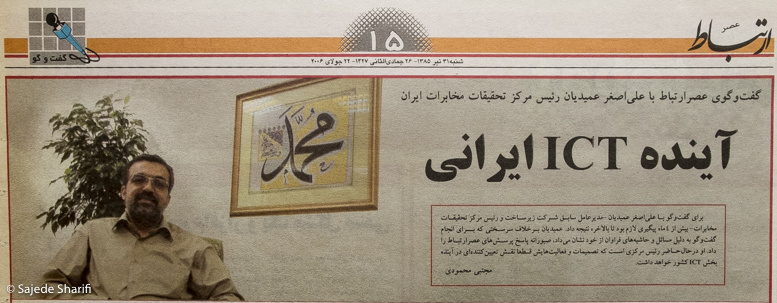 عصر
ارتباط
۱۵
گفت و گو
شنبه ۳۱ تیر ۱۳۸۵- ۲۶ جمادی‌الثانی ۱۴۲۷- ۲۲ جولای ۲۰۰۶
گفت‌وگوی عصر ارتباط با علی‌اصغر عمیدیان رئیس مرکز تحقیقات مخابرات ایران
آینده ICT ایرانی
محمد
برای گفت‌وگو با علی‌اصغر عمیدیان -مدیرعامل سابق شرکت زیرساخت و رئیس مرکز تحقیقات
مخابرات- بیش از ۴ ماه پیگیری لازم بود تا بالاخره نتیجه داد. عمیدیان برخلاف سرسختی که برای انجام
گفت‌وگو به دلیل مسائل و حاشیه‌های فراوان از خود نشان می‌داد، صبورانه پاسخ پرسش‌های عصر ارتباط را
داد. او در حال حاضر رئیس مرکزی است که تصمیمات و فعالیت‌هایش قطعا نقش تعیین‌کننده‌ای در آینده
بخش ICT کشور خواهد داشت.
مجتبی محمودی
© Sajede Sharifi